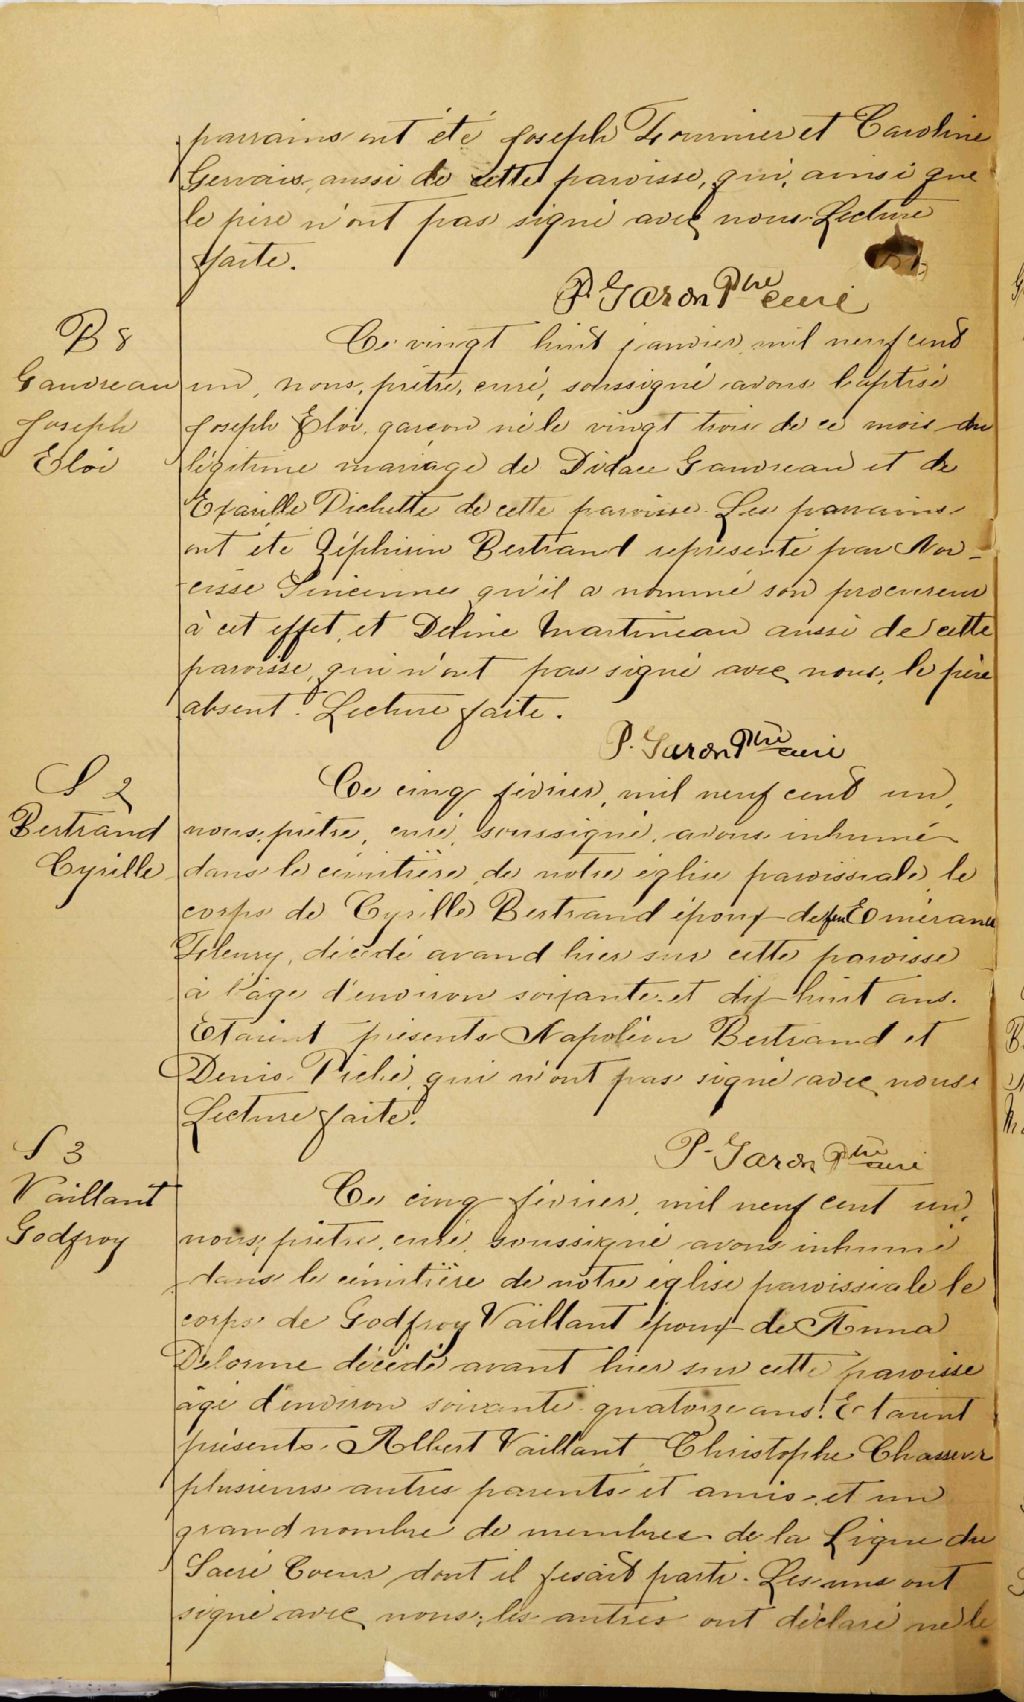 parrains ont été Joseph Fournier et Caroline
Gervais, aussi de cette paroisse, qui, ainsi que
le père n'ont pas signé avec nous. Lecture
faite.
P. Garon Ptre curé
B 8
Gaudreau
Joseph
Eloi
Ce vingt huit janvier, mil neuf cent
un, nous, prêtre, curé, soussigné avons baptisé
Joseph Eloi, garçon né le vingt trois de ce mois du
légitime mariage de Didace Gaudreau et de
Exarille Pichette de cette paroisse. Les parrains
ont été Zéphirin Bertrand représenté par Nar-
cisse Sincennes qu'il a nommé son procureur
à cet effet, et Deline Martineau aussi de cette
paroisse, qui n'ont pas signé avec nous, le père
absent. Lecture faite.
P. Garon Ptre curé
S 2
Bertrand
Cyrille
Ce cinq février, mil neuf cent un,
nous, prêtre, curé, soussigné, avons inhumé
dans le cémitière de notre église paroissiale le
corps de Cyrille Bertrand époux de feu Emérance
Fleury, décédé avand hier sur cette paroisse
à l'âge d'environ soixante et dix-huit ans.
Etaient présents Napoléon Bertrand et
Denis Piché, qui n'ont pas signé avec nous.
Lecture faite.
P. Garon Ptre curé
S 3
Vaillant
Godfroy
Ce cinq février, mil neuf cent un,
nous, prêtre, curé, soussigné avons inhumé
dans le cémitière de notre église paroissiale le
corps de Godfroy Vaillant époux de Anna
Delorme décédé avant hier sur cette paroisse
âgé d'environ soixante quatorze ans. Etaient
présents Albert Vaillant, Christophe Chasseur
plusieurs autres parents et amis et un
grand nombre de membres de la Ligue du
Sacré Coeur dont il fesait parti. Les uns ont
signé avec nous, les autres ont déclaré ne le